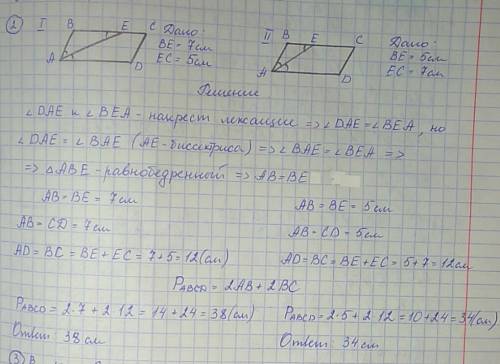 ① I B E C Дано: II B E C Дано:
BE = 7см BE = 5см
A D EC = 5см A D EC = 7см
Решение
∠DAE и ∠BEA - накрест лежащие => ∠DAE = ∠BEA, но
∠DAE = ∠BAE (AE - биссектриса) => ∠BAE = ∠BEA =>
=> △ABE - равнобедренный => AB = BE
AB = BE = 7 см AB = BE = 5 см
AB = CD = 7см AB = CD = 5см
AD = BC = BE + EC = 7 + 5 = 12(см) AD = BC = BE + EC = 5 + 7 = 12см
PABCD = 2AB + 2BC
PABCD = 2·7 + 2·12 = 14 + 24 = 38(см) PABCD = 2·5 + 2·12 = 10 + 24 = 34(см)
Ответ: 38 см Ответ: 34 см
③ B